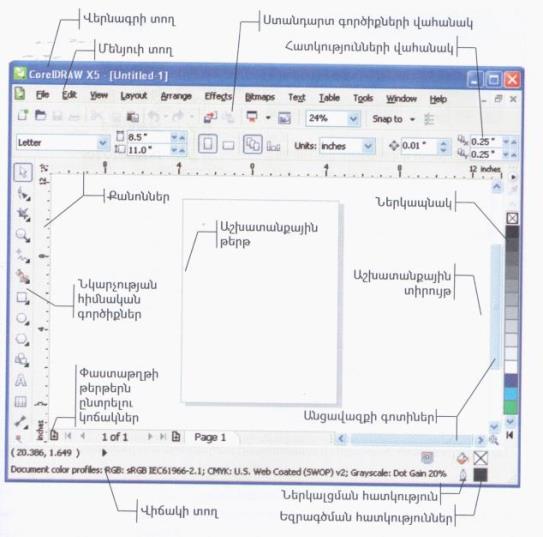 Վերնագրի տող
Ստանդարտ գործիքների վահանակ
Մենյուի տող
Հատկությունների վահանակ
CorelDRAW X5 - [Untitled-1]
File Edit View Layout Arrange Effects Bitmaps Text Table Tools Window Help
24% Snap to
Letter 8.5 " 11.0 " Units: inches 0.01 " 0.25 " 0.25 "
12 inches
Քանոններ
Ներկապնակ
Աշխատանքային
թերթ
Աշխատանքային
տիրույթ
Նկարչության
հիմնական
գործիքներ
Փաստաթղթի
թերթերն
ընտրելու
կոճակներ
Անցավազքի գոտիներ
inches
1 of 1 Page 1
( 20.386, 1.649 )
Document color profiles: RGB: sRGB IEC61966-2.1; CMYK: U.S. Web Coated (SWOP) v2; Grayscale: Dot Gain 20%
Ներկալցման հատկություն
Եզրագծման հատկություններ
Վիճակի տող